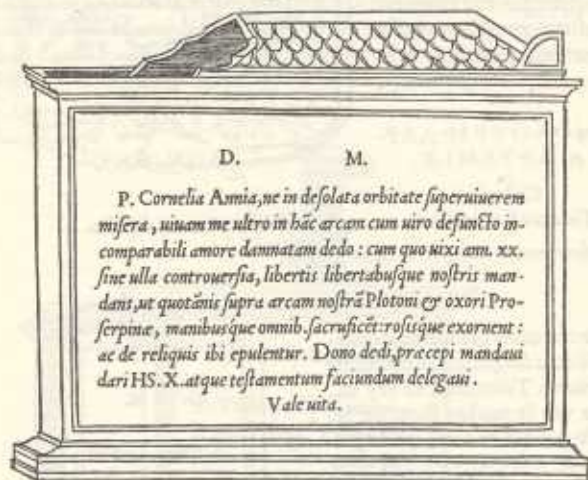 D. M.
P. Cornelia Annia, ne in deſolata orbitate ſuperuiuerem
miſera, uiuam me ultro in hãc arcam cum uiro defuncto in-
comparabili amore damnatam dedo: cum quo uixi ann. xx.
ſine ulla controuerſia, libertis libertabuſque noſtris man-
dans, ut quotãnis ſupra arcam noſtrã Plotoni & oxori Pro-
ſerpinæ, manibuſque omnib. ſacrificẽt: roſisque exornent:
ac de reliquis ibi epulentur. Dono dedi, præcepi mandaui
dari HS. X. atque teſtamentum faciundum delegaui.
Vale uita.